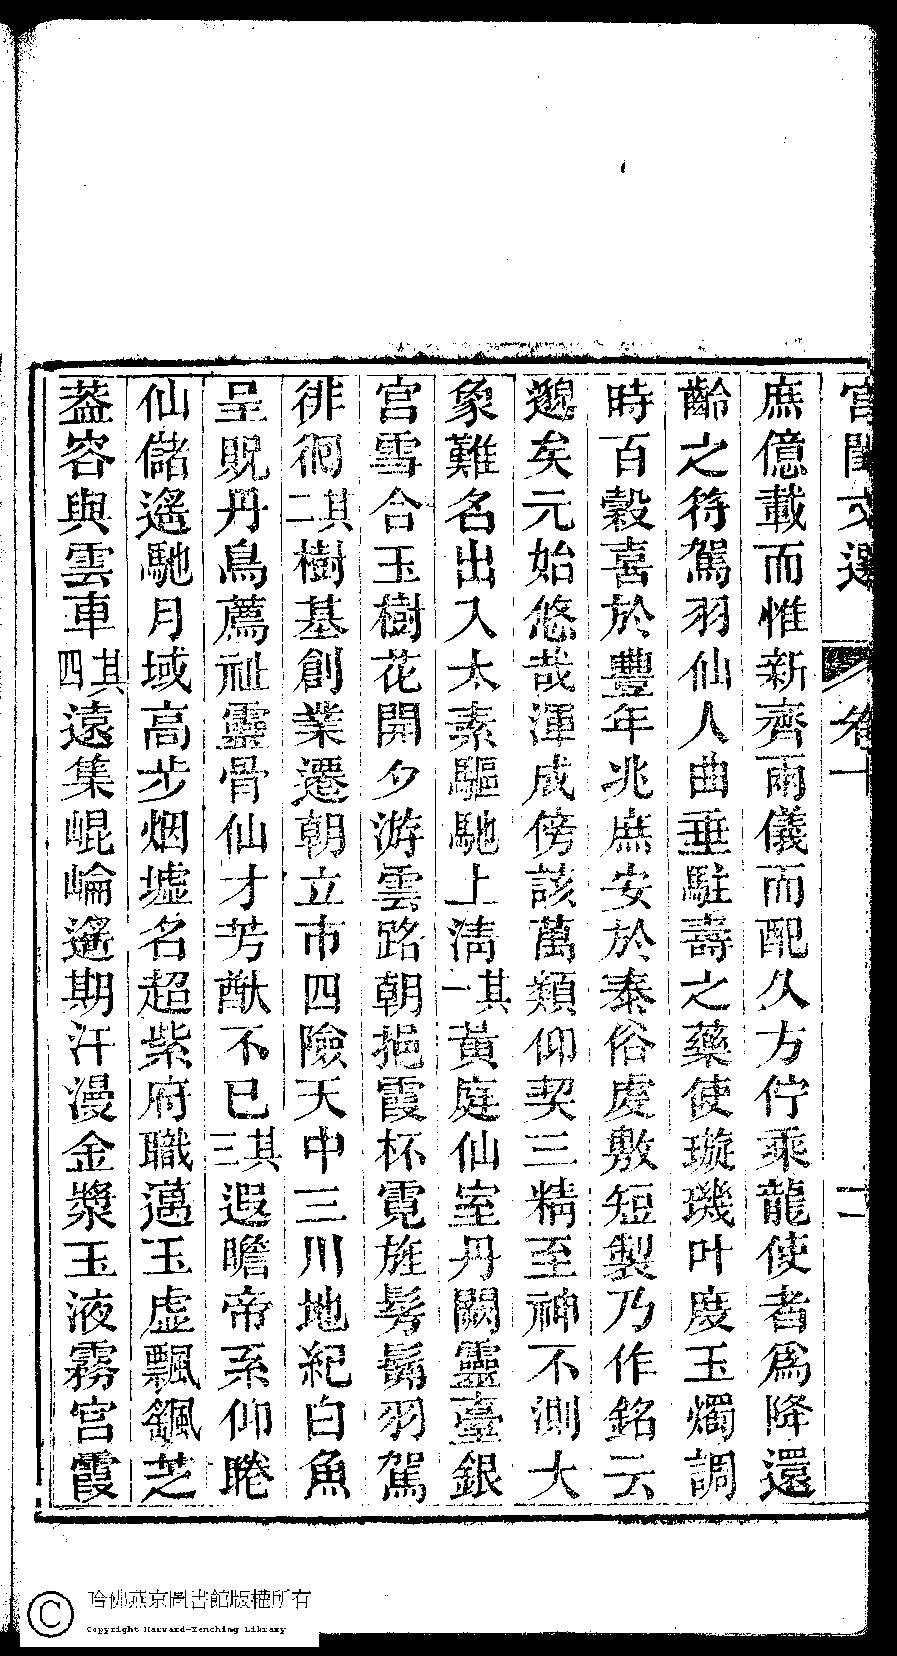 宮閨文選 卷十 二
庶億載而惟新齊兩儀而配久方佇乘龍使者爲降還
齡之符駕羽仙人曲垂駐壽之藥使璇璣叶度玉燭調
時百穀喜於豐年兆庶安於泰俗虔敷短製乃作銘云
邈矣元始悠哉渾成傍該萬類仰契三精至神不測大
象難名出入太素驅馳上淸其一黃庭仙室丹闕靈臺銀
宮雪合玉樹花開夕游雲路朝挹霞杯霓旌髣髴羽駕
徘徊其二樹基創業遷朝立市四險天中三川地紀白魚
呈貺丹烏薦祉靈骨仙才芳猷不已其三遐瞻帝系仰睠
仙儲遙馳月域高步烟墟名超紫府職邁玉虛飄飆芝
葢容與雲車其四遠集崐崘遙期汗漫金漿玉液霧宮霞
哈佛燕京圖書館版權所有
Copyright Harvard-Yenching Library